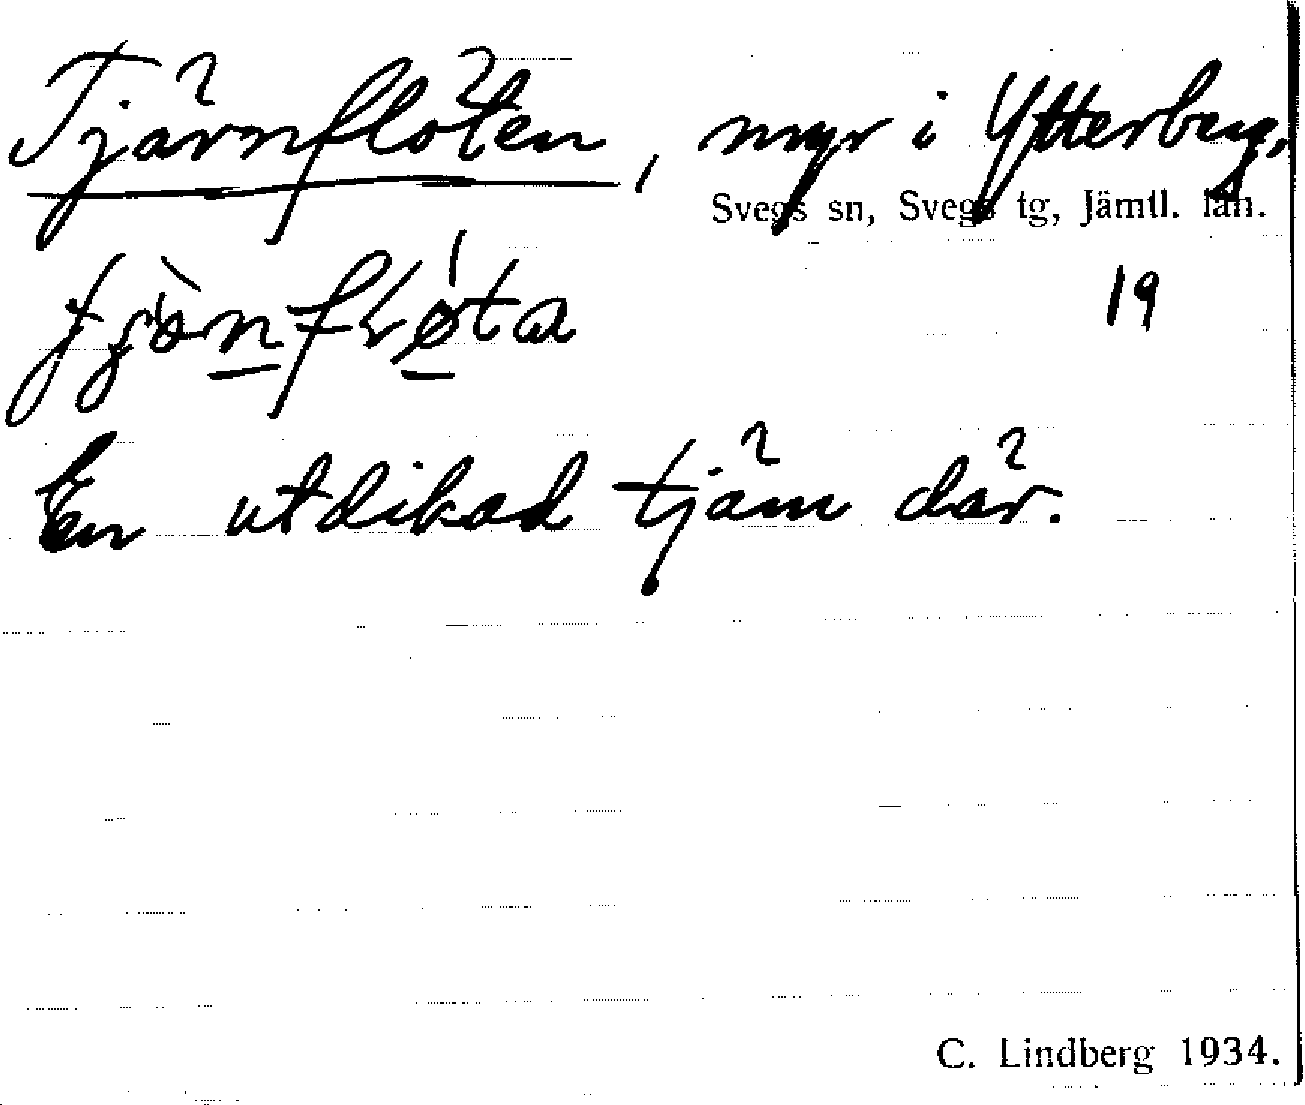 Tjärnflöten, myr i Ytterberg,
Svegs sn, Svegs tg, Jämtl. län.
19
En utdikad tjärn där.
C. Lindberg 1934.